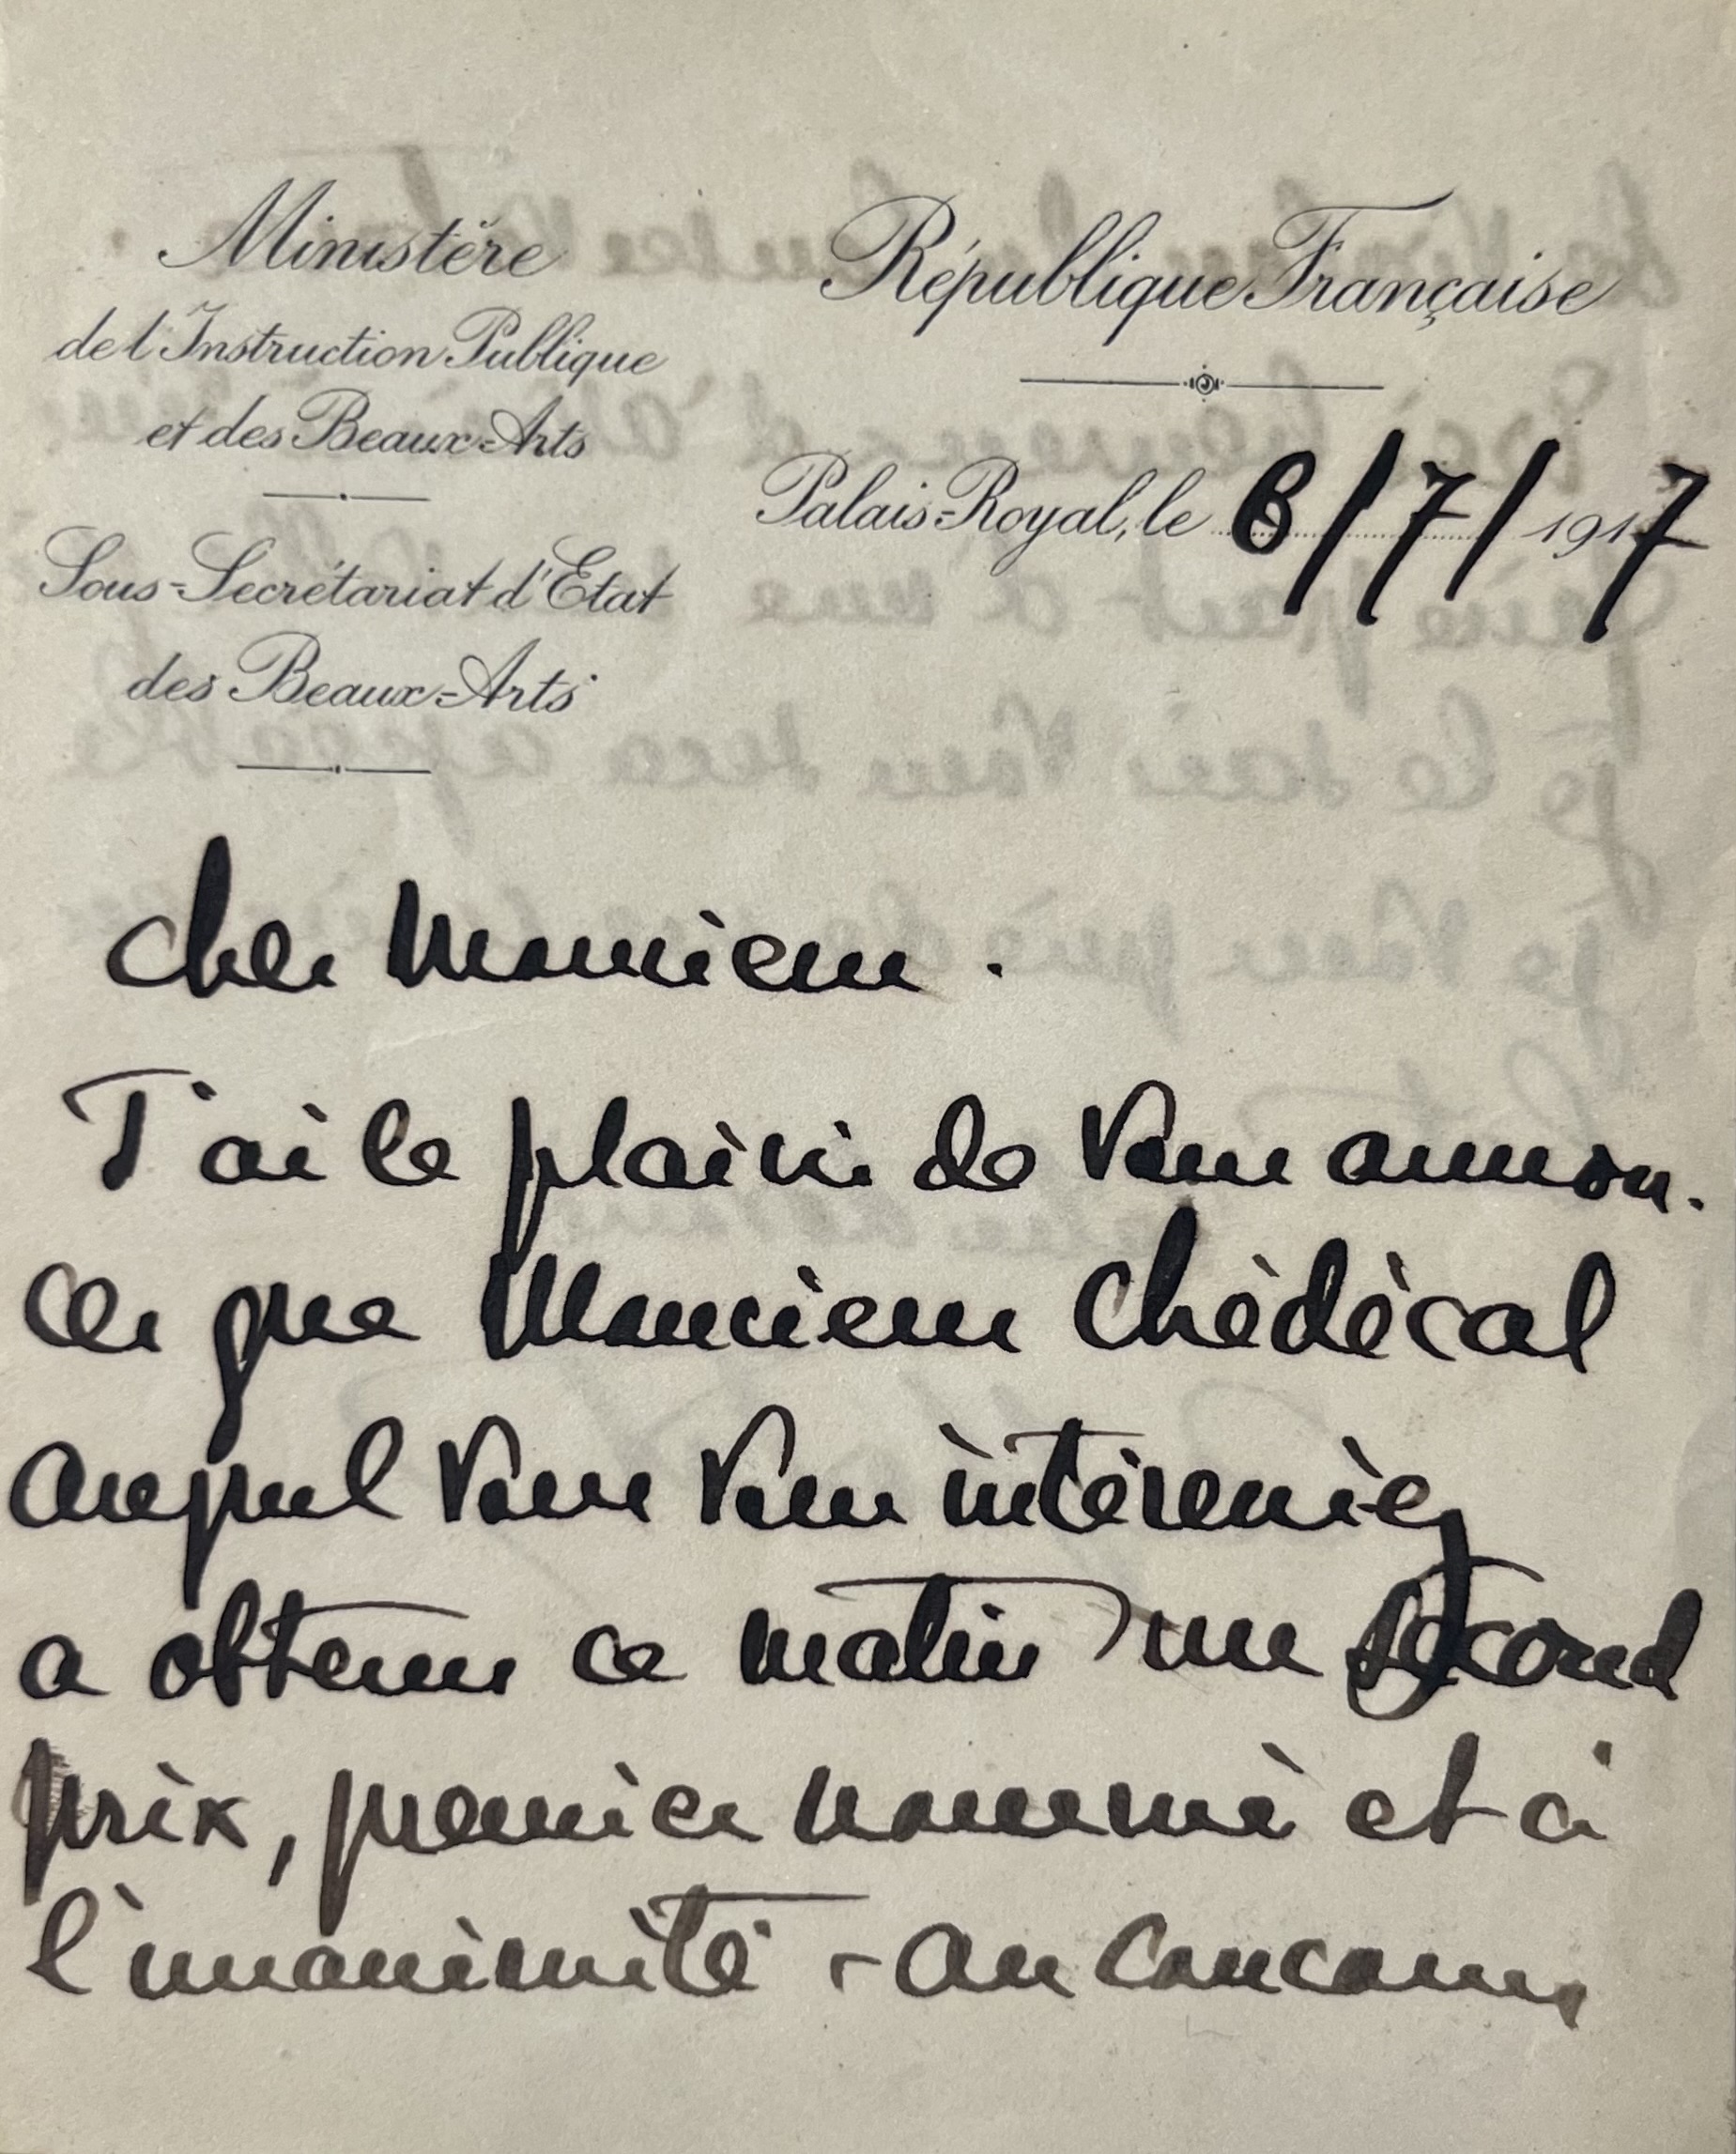 Ministère
de l'Instruction Publique
et des Beaux-Arts
Sous-Secrétariat d'Etat
des Beaux-Arts
République Française
Palais-Royal, le 6/7/1917
Cher Monsieur.
J'ai le plaisir de vous annon-
cer que Monsieur Chédécal
auquel vous vous intéressiez
a obtenu ce matin un second
prix, premier nommé et à
l'unanimité - au concours